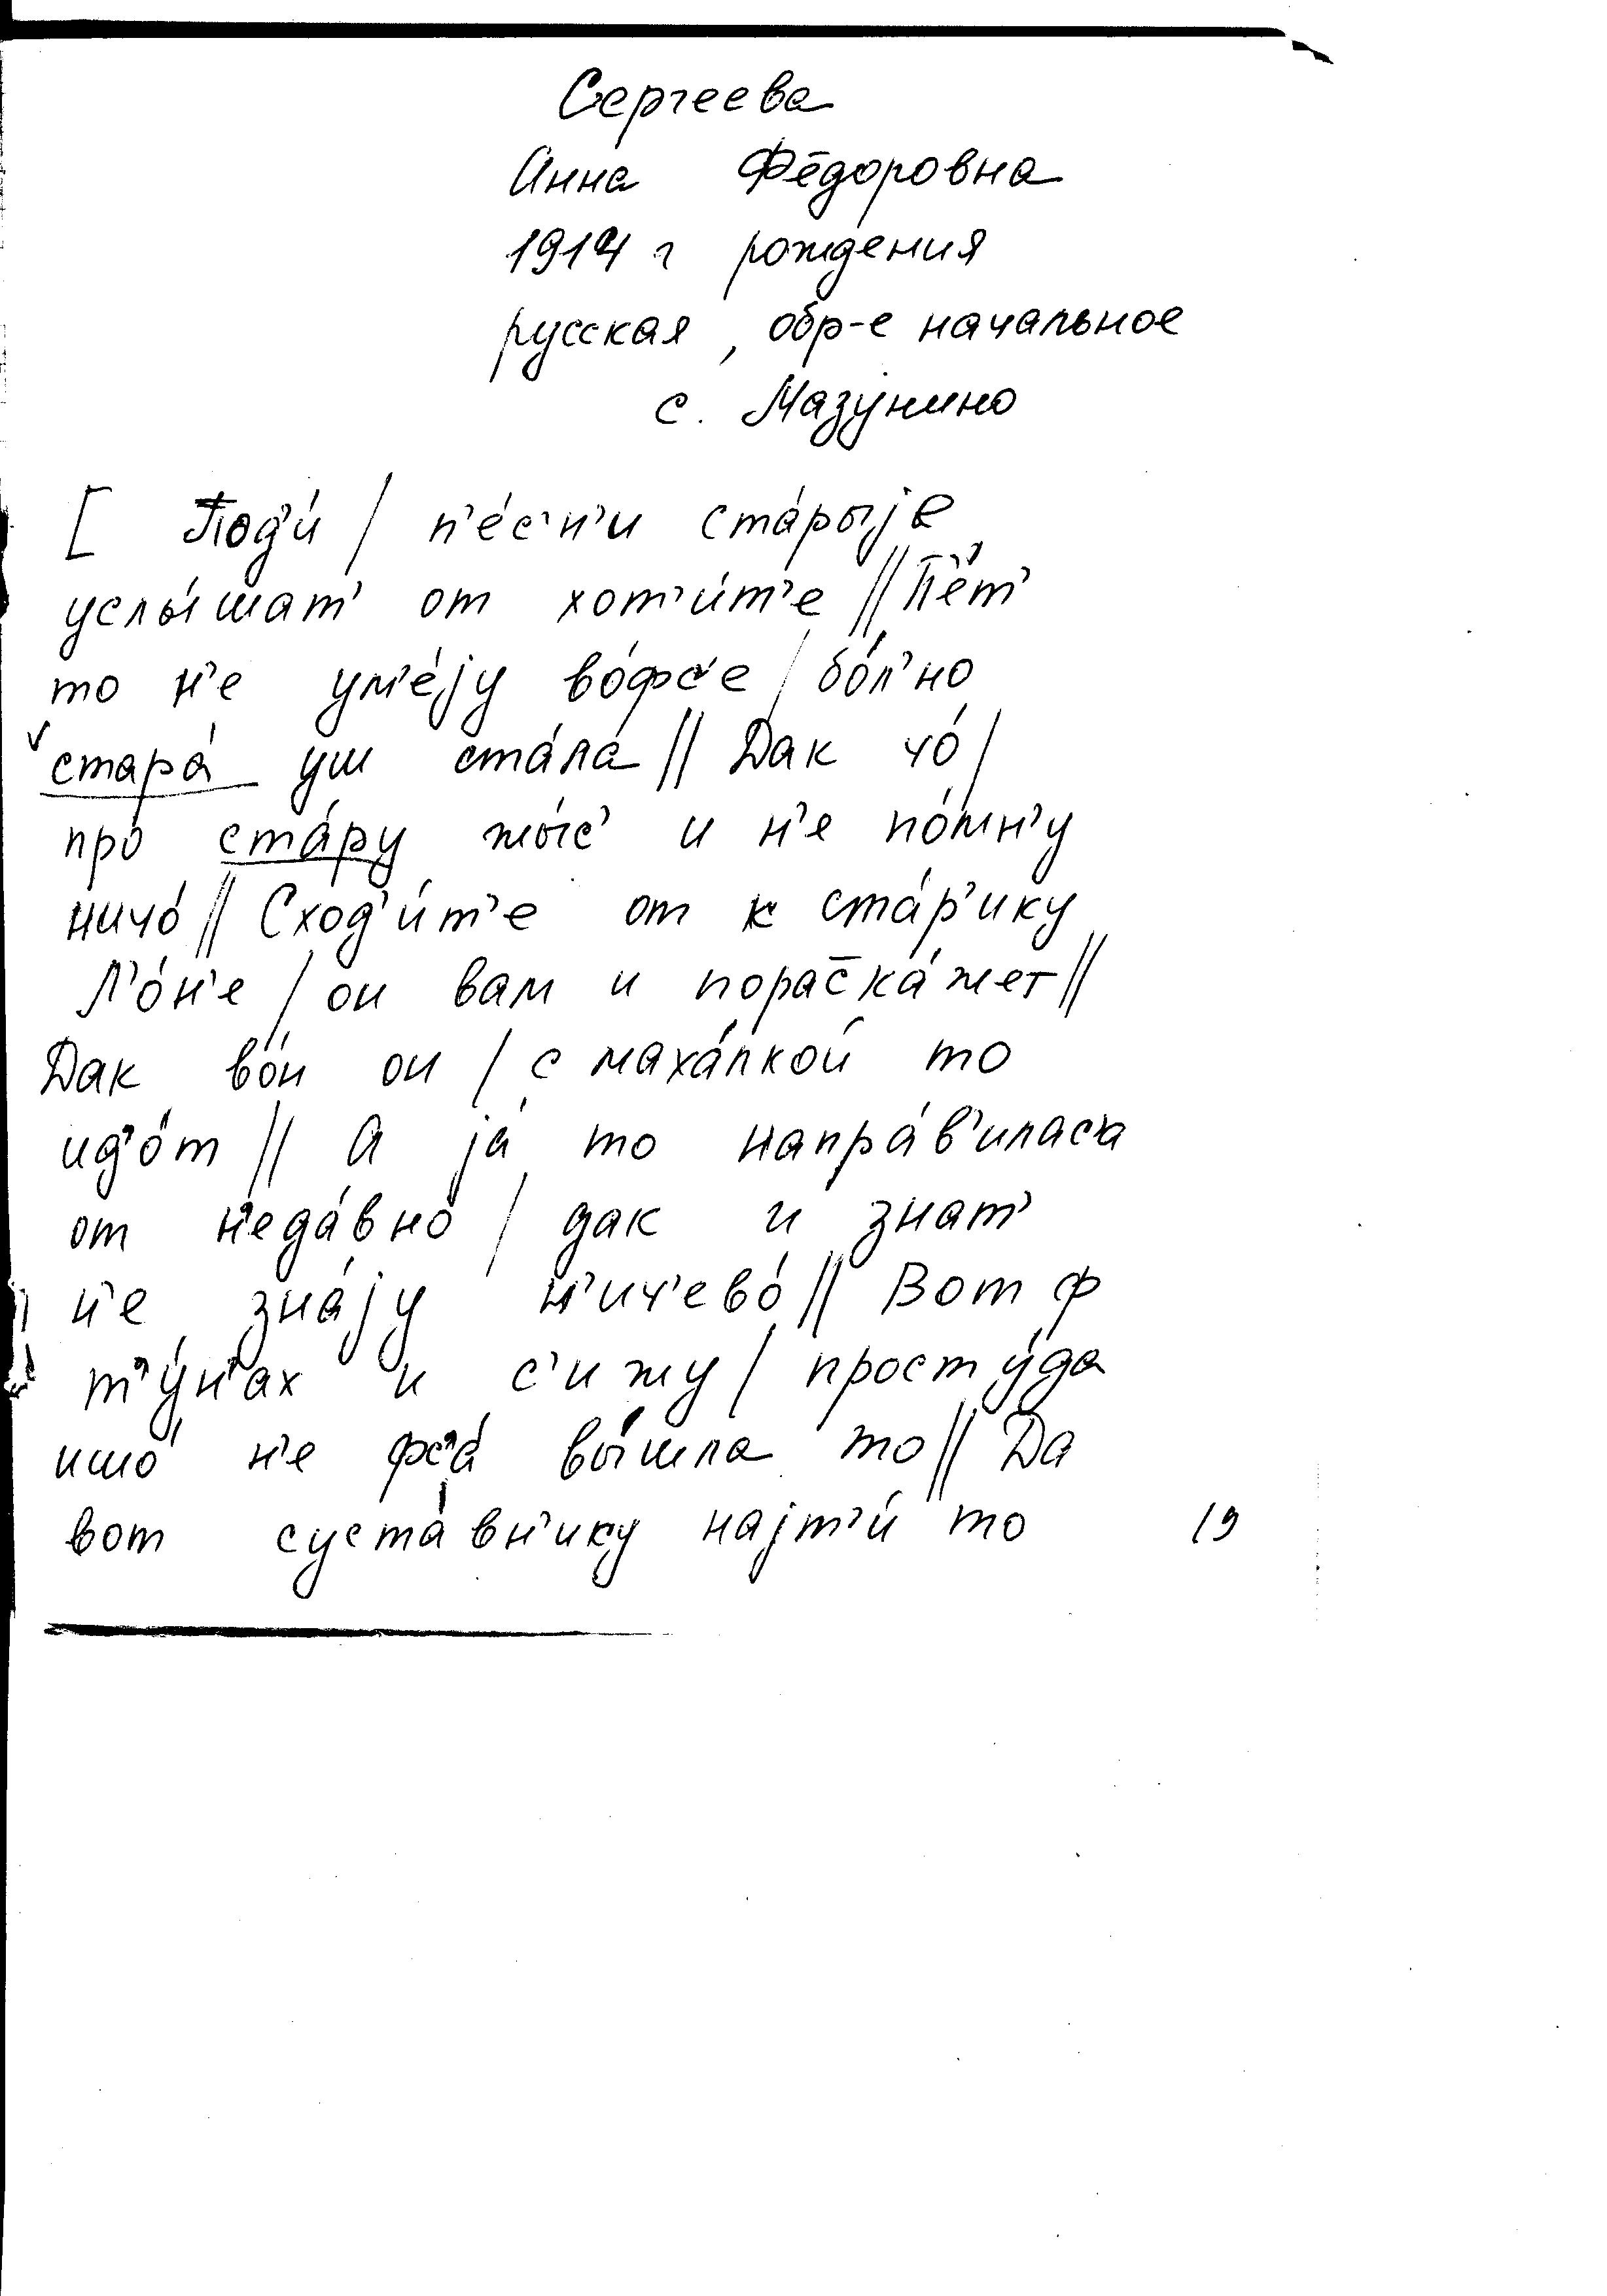 Сергеева
Анна Фёдоровна
1914 г рождения
русская, обр-е начальное
с. Мазунино
[ Под'и́ / п'е́с'н'и ста́рыjе
услы́шат' от хот'и́т'е // Пе́т'
то н'е ум'е́jу во́фс'е / бо́л'но
стара́ уш ста́ла // Дак чо́ /
про ста́ру жы́с' и н'е по́мн'у
ничо́ // Сход'и́т'е от к ста́р'ику
Л'о́н'е / он вам и пораска́жет //
Дак во́н он / с маха́лкой то
ид'о́т // А jа́ то напра́в'иласа
от н'еда́вно / дак и знат'
н'е зна́jу н'ич'ево́ // Вот ф
т'у́н'ах и с'ижу / просту́да
ишо́ н'е фс'а́ вы́шла то // Да
вот суста́вн'ику наjт'и́ то
19